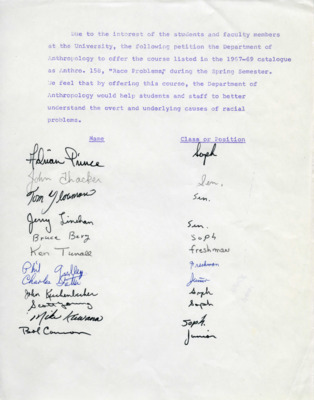 Due to the interest of the students and faculty members
at the University, the following petition the Department of
Anthropology to offer the course listed in the 1967-68 catalogue
as Anthro. 150, "Race Problems," during the Spring Semester.
We feel that by offering this course, the Department of
Anthropology would help students and staff to better
understand the overt and underlying causes of racial
problems.
Name Class or Position
Adrian Prince Soph
John Thacker
Tom Sin.
Jerry Linehan Sin.
Bruce Berg Soph
Ken Tunall freshman
Phil Freshman
Charles Junior
John Soph
Scott Young Soph
Mike Soph.
Paul Cannon Junior